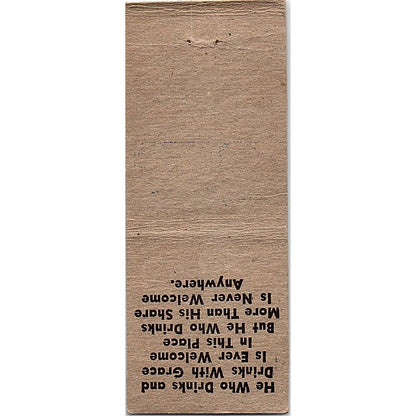 He Who Drinks and
Drinks With Grace
Is Ever Welcome
In This Place
But He Who Drinks
More Than His Share
Is Never Welcome
Anywhere.